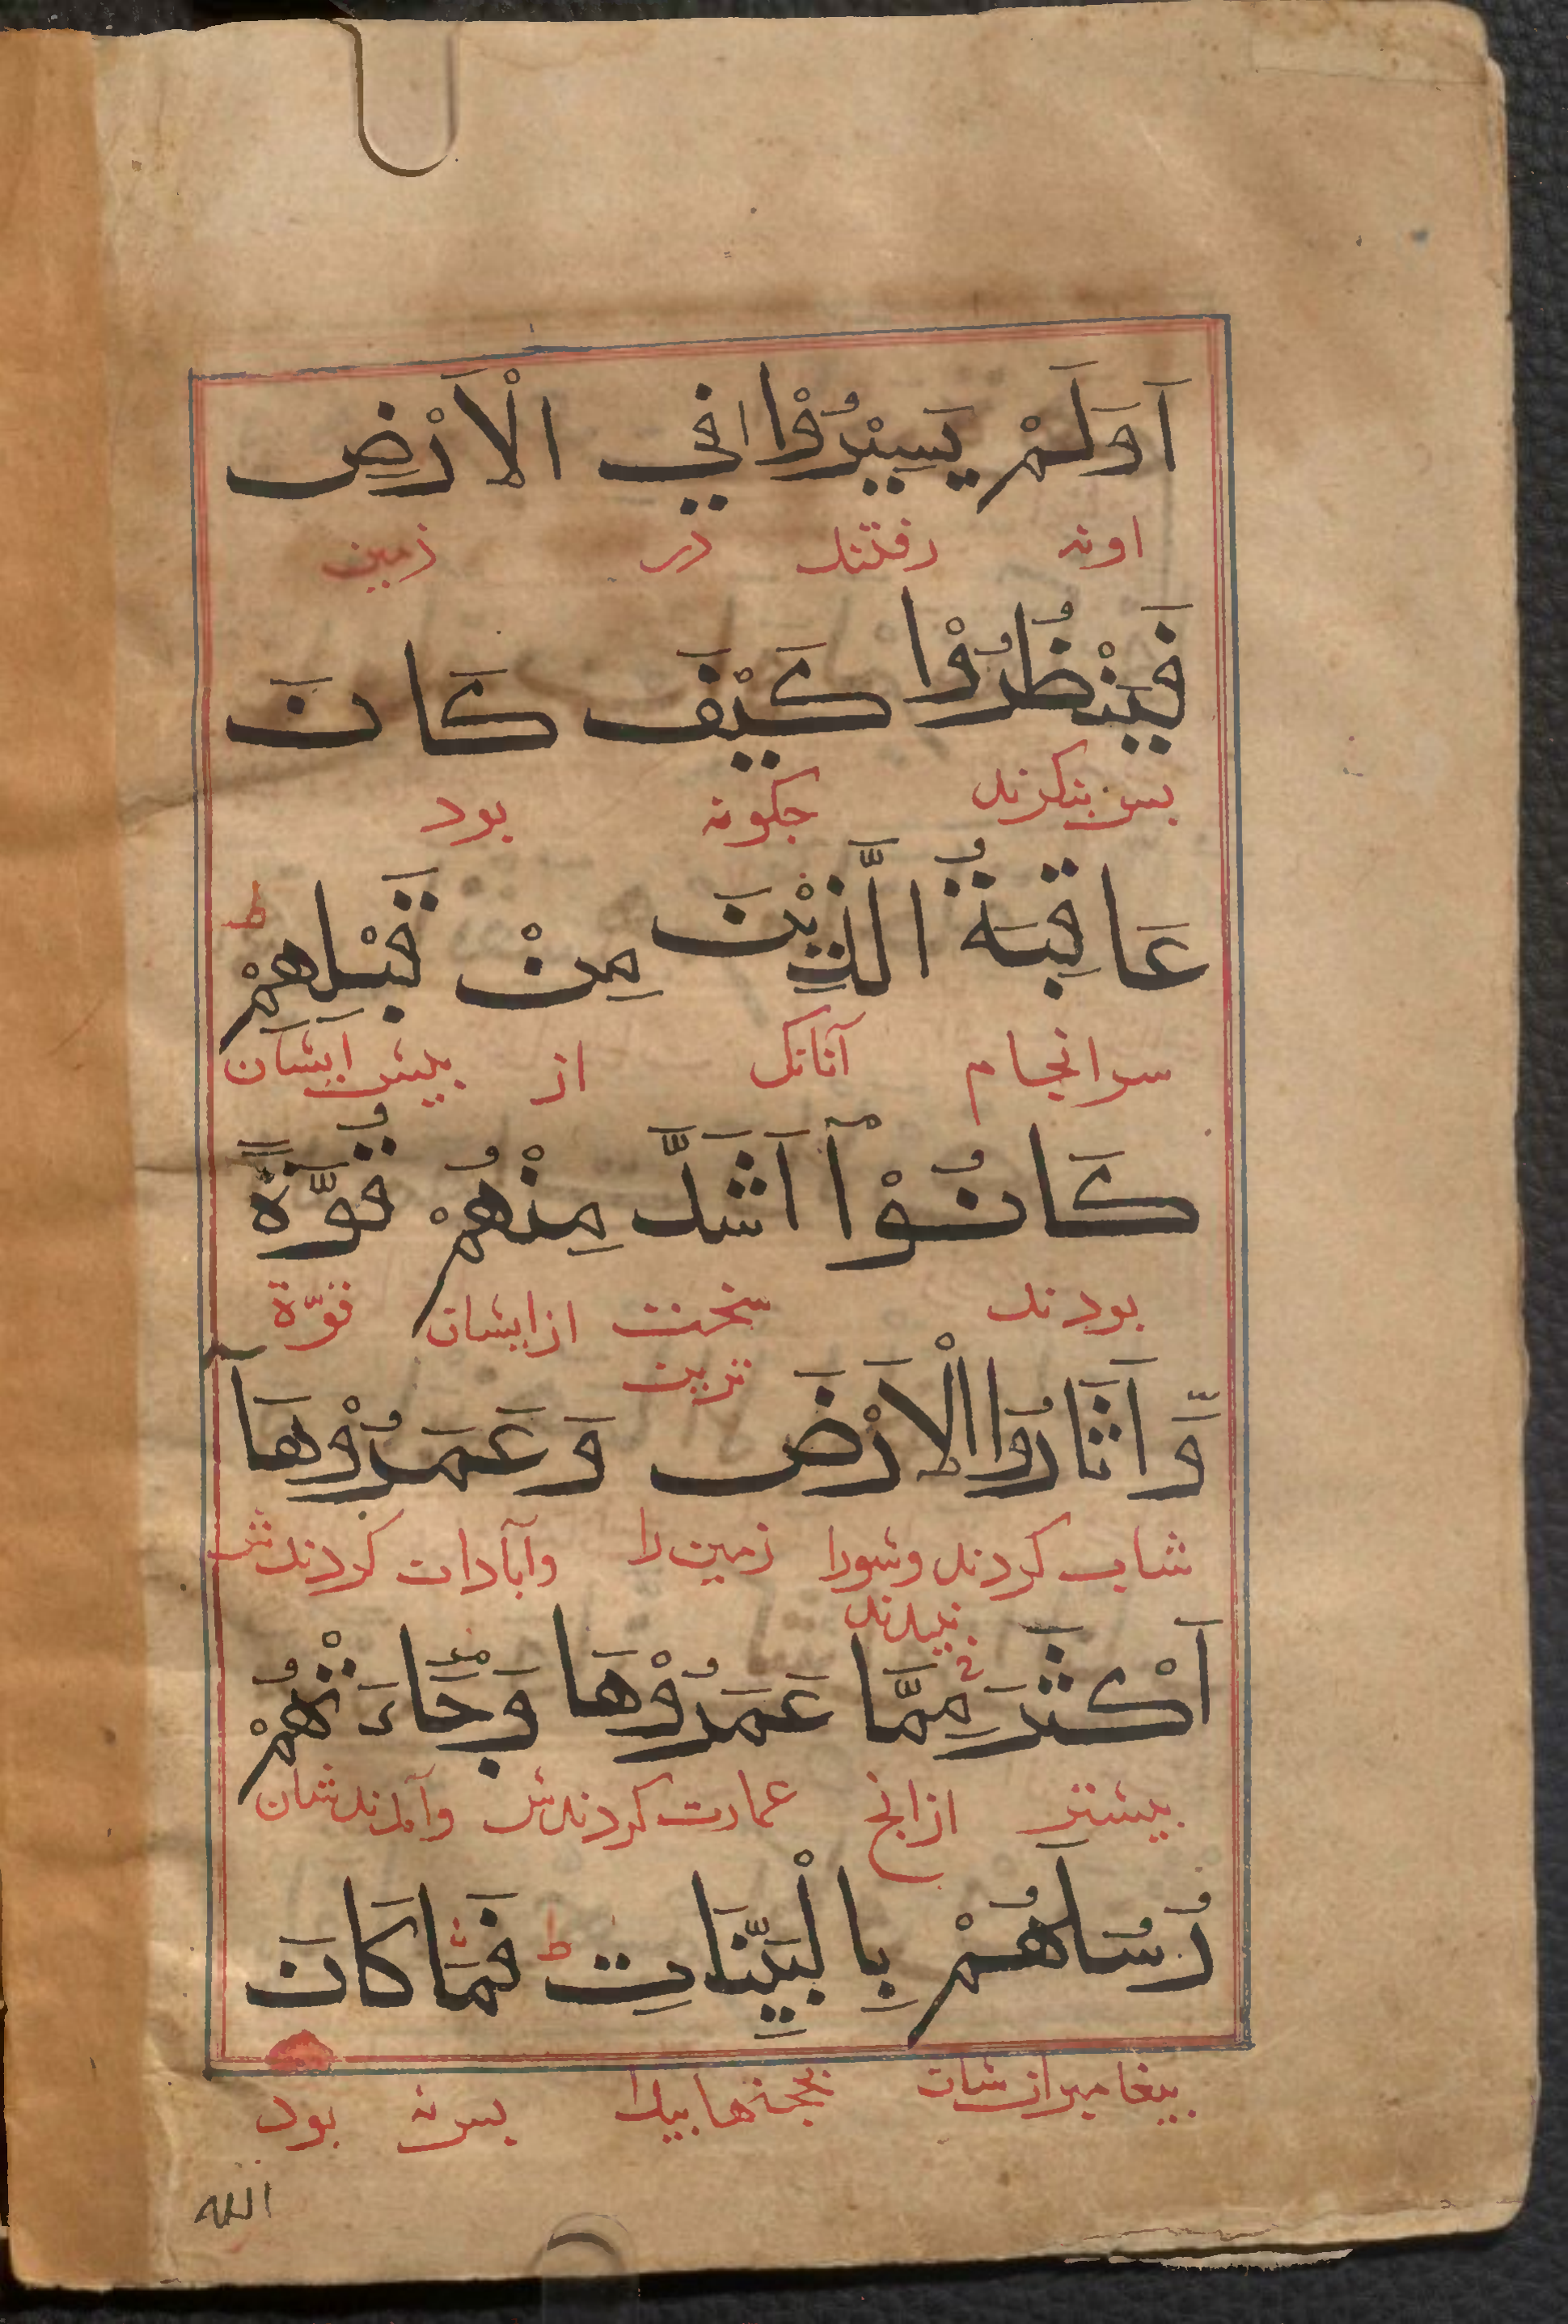 اَوَلَمْ يَسِيْرُوْا فِي الْاَرْضِ
اونه رفتند در زمین
فَيَنْظُرُوْا كَيْفَ كَانَ
بس بنکرند جکونه بود
عَاقِبَةُ الَّذِيْنَ مِنْ قَبْلِهِمْ ط
سرانجام آنانک از بیش ایشان
كَانُوْٓا اَشَدَّ مِنْهُمْ قُوَّةً
بودند سخت ازایشان قوّة
ترین
وَّاَثَارُوا الْاَرْضَ وَعَمَرُوْهَآ
کردند وشورا زمین را وآبادان کردندش
نیدند
اَكْثَرَ مِمَّا عَمَرُوْهَا وَجَآءَتْهُمْ
بیشتر ازانج عمارت کردندش وآمدندشان
رُسُلُهُمْ بِالْبَيِّنَاتِ ط فَمَا كَانَ
بیغامبرانشان بحجتها بیدا بس نه بود
الله